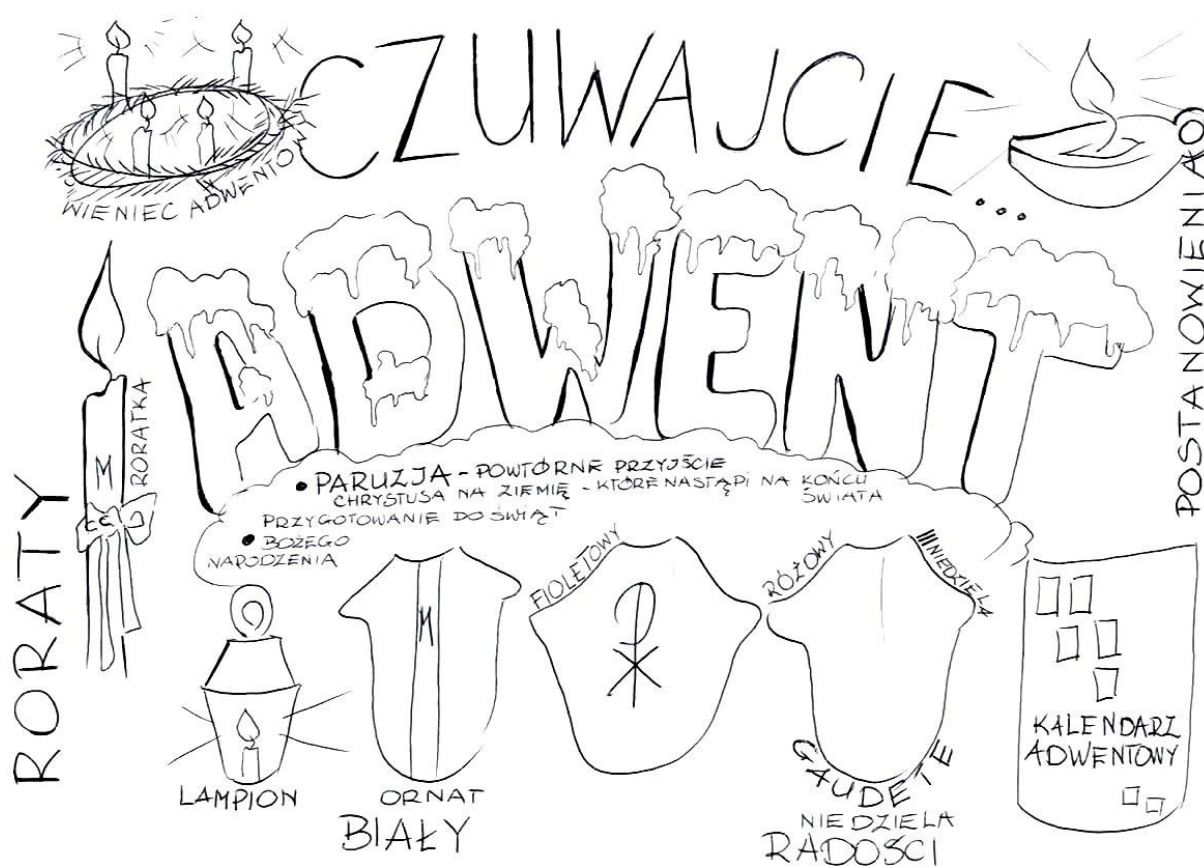 CZUWAJCIE...
WIENIEC ADWENTO
ADWENT
POSTANOWIENIA
RORATY
RORATKA
M
• PARUZJA - POWTÓRNE PRZYJŚCIE
CHRYSTUSA NA ZIEMIĘ - KTÓRE NASTĄPI NA KOŃCU
ŚWIATA
PRZYGOTOWANIE DO ŚWIĄT
• BOŻEGO
NARODZENIA
LAMPION
M
ORNAT
BIAŁY
FIOLETOWY
RÓŻOWY
III NIEDZIELA
GAUDETE
NIEDZIELA
RADOŚCI
KALENDARZ
ADWENTOWY